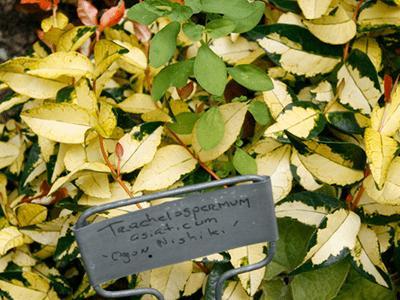 Trachelospermum
asiaticum
'Ogon Nishiki'